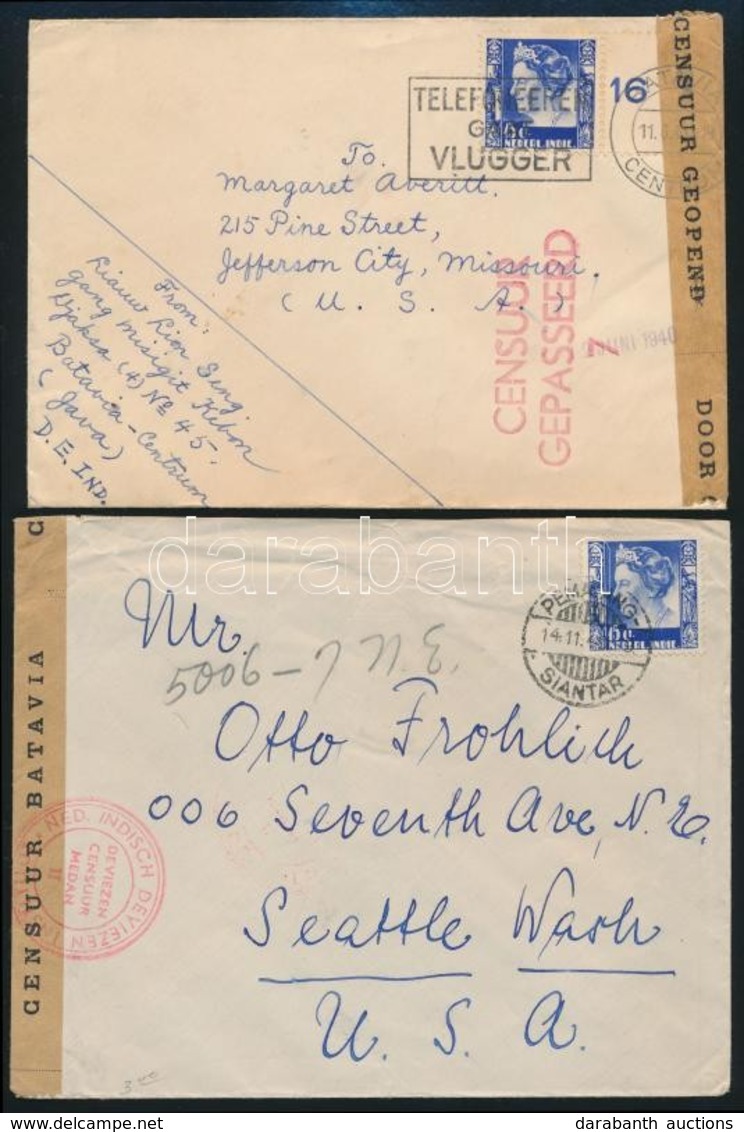 TELEFONEEREN
GAAT
VLUGGER
NEDERL. INDIE
16
BATAVIA
11.
CENTRUM
CENSUUR GEOPEND
DOOR
To.
Margaret Averitt.
215 Pine Street,
Jefferson City, Missouri,
(U. S. A.)
CENSUUR
GEPASSEERD
7
JUNI 1940
From:
Liauw Lion Seng
gang Misigit Kebon
Djaksa (4) No 45.
Batavia-Centrum
(Java)
D. E. IND.
darabanth
C
CENSUUR BATAVIA
NED. INDISCH DEVIEZEN
DEVIEZEN
CENSUUR
MEDAN
II
NEDERL. INDIE
PEMATANG-
14.11.
SIANTAR
Mr.
5006-7 N.E.
Otto Frohlich
006 Seventh Ave, N.E.
Seattle Wash
U. S. A.
darabanth auctions